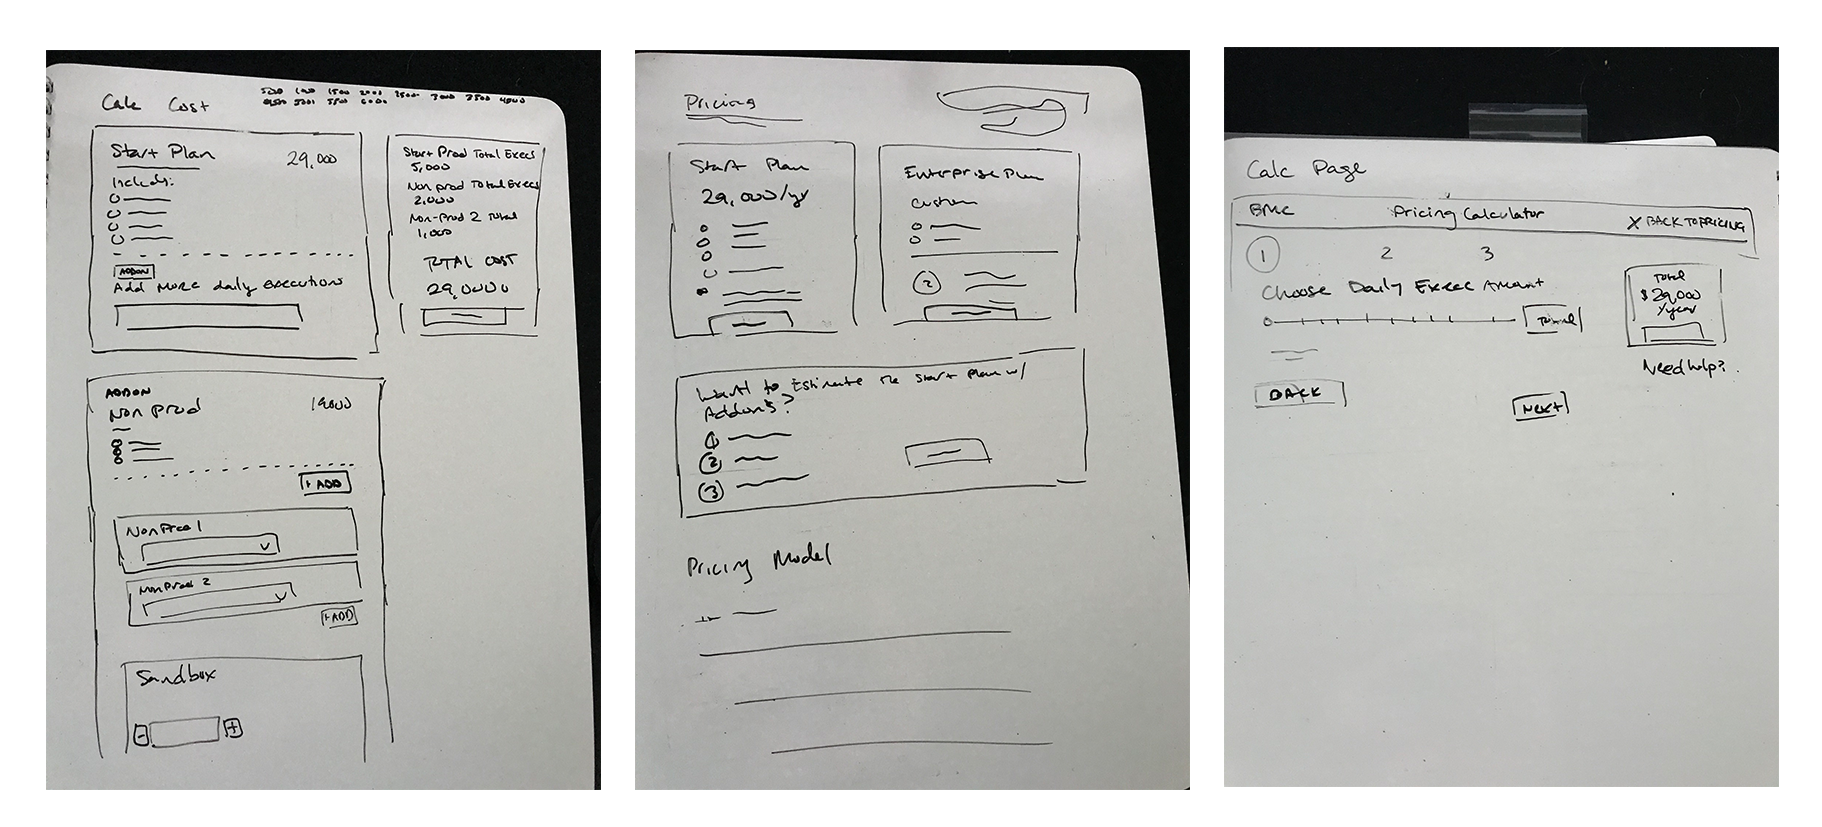 Calc Cost
500 1000 1500 2000 2500 3000 3500 4000
Start Plan 29,000
Includes:
ADDON
Add More daily executions
Start Prod Total Execs
5,000
Non prod Total Execs
2,000
Non-Prod 2 Total
1,000
TOTAL COST
29,0000
ADDON
Non Prod 19000
+ ADD
Non Prod 1
Non Prod 2
+ ADD
Sandbox
- +
Pricing
Start Plan
29,000/yr
Enterprise Plan
custom
2
Want to Estimate the Start Plan w/
Addons?
1
2
3
Pricing Model
Calc Page
BMC Pricing Calculator X BACK TO PRICING
1 2 3
Choose Daily Exec Amount
Total
$29,000
/year
Need help?
BACK
NEXT